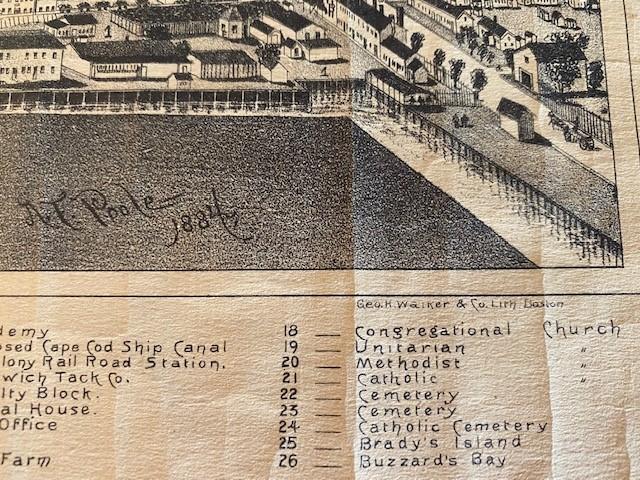 1
1
A.F. Poole
1884
Geo. H. Walker & Co. Lith Boston
demy
osed Cape Cod Ship Canal
lony Rail Road Station.
wich Tack Co.
lty Block.
al House.
Office
Farm
18 — Congregational Church
19 — Unitarian "
20 — Methodist "
21 — Catholic "
22 — Cemetery
23 — Cemetery
24 — Catholic Cemetery
25 — Brady's Island
26 — Buzzard's Bay